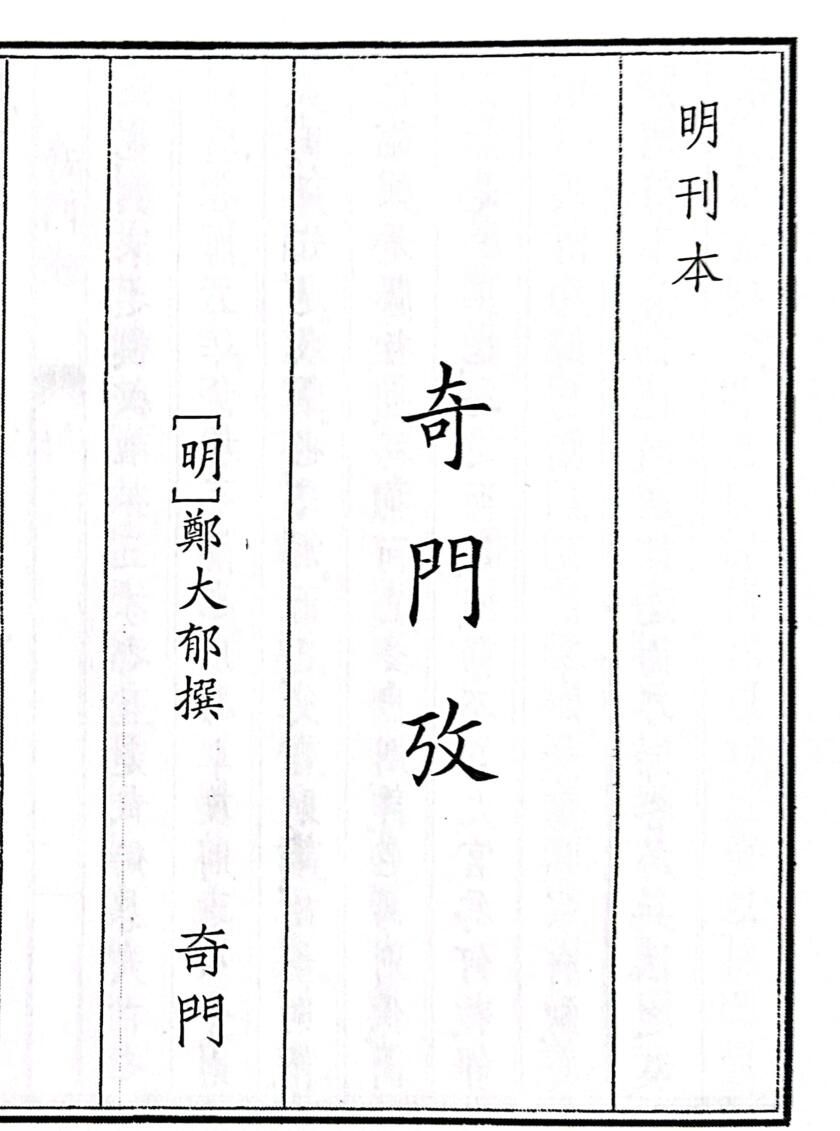 明刊本
奇門攷
[明]鄭大郁撰
奇門